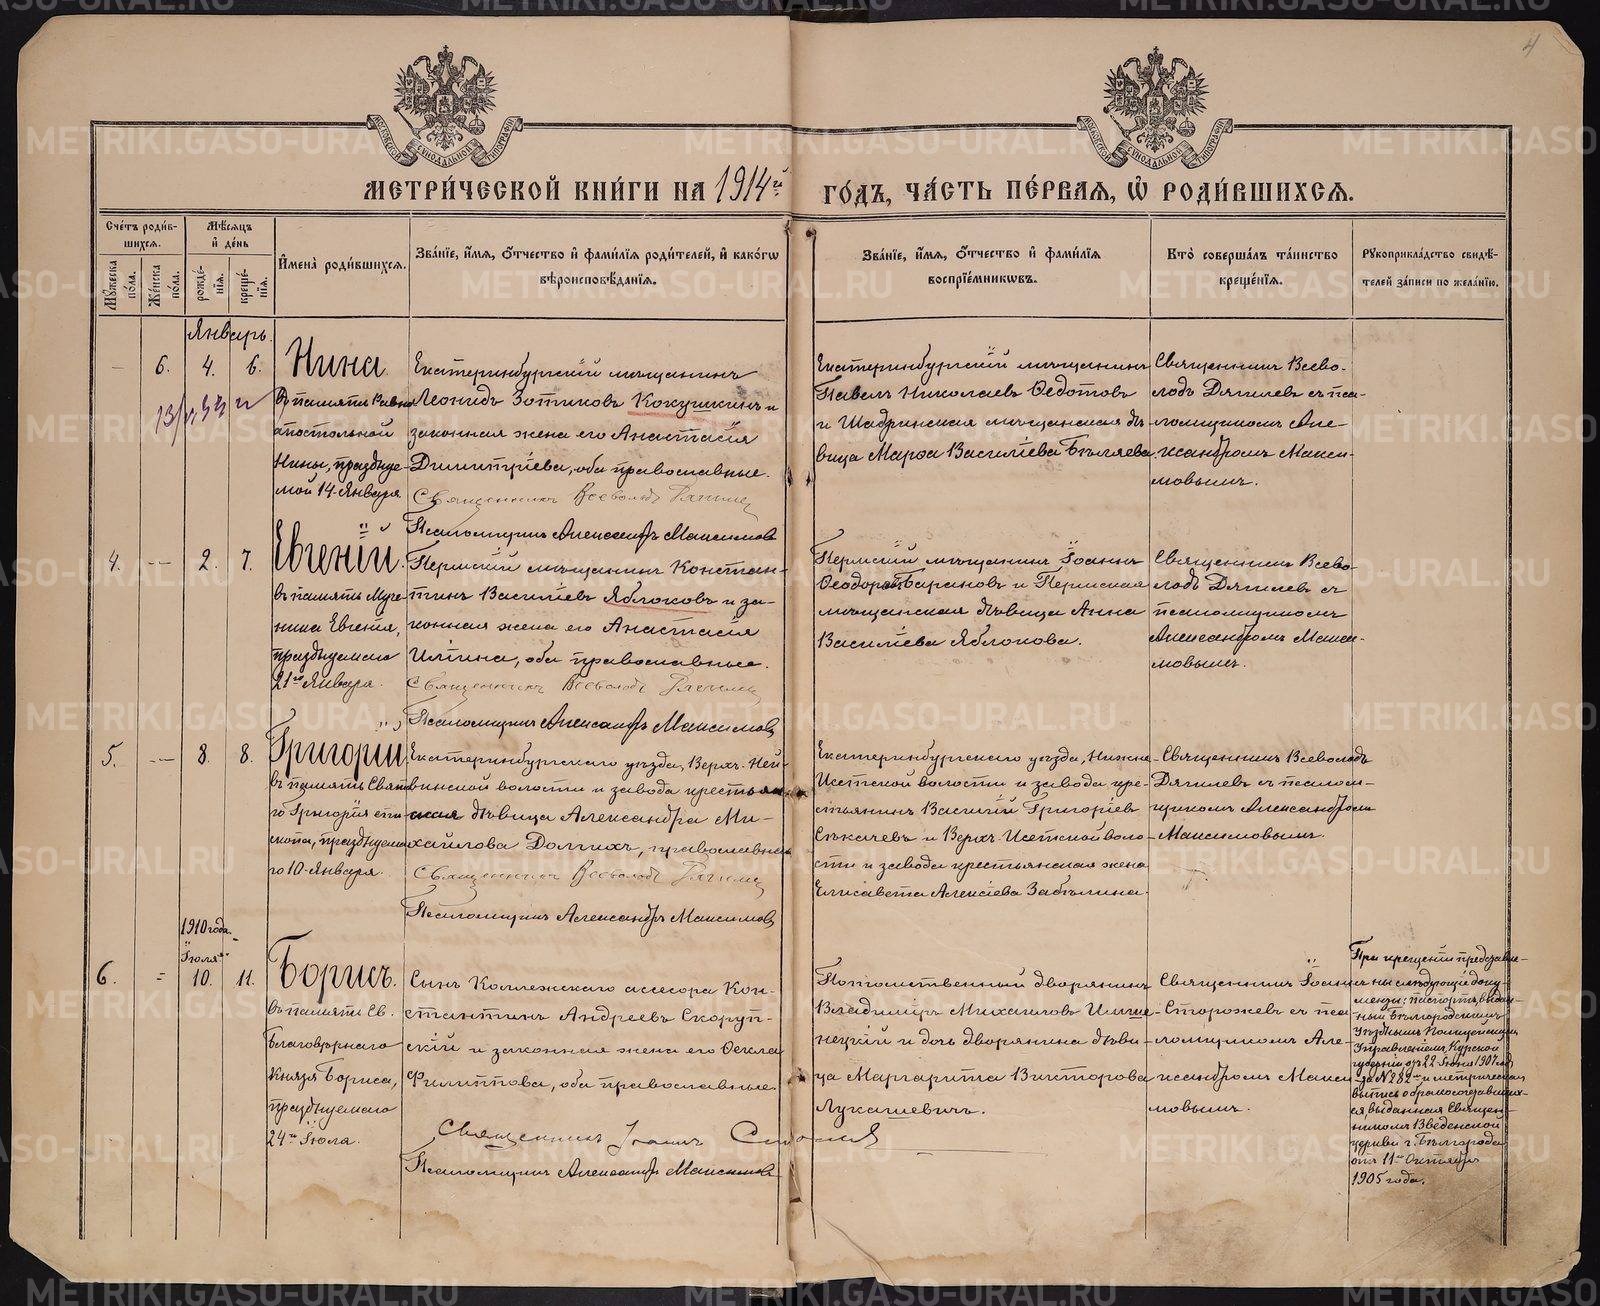 4
МЕТРИ́ЧЕСКОЙ КНИ́ГИ НА 1914й ГО́ДЪ, ЧА́СТЬ ПЕ́РВАЯ, Ѡ РОДИ́ВШИХСЯ.
Сче́тъ роди́в-
шихся.
Мѣ́сяцъ
и де́нь
Му́жеска по́ла.
Же́нска по́ла.
рожде́нія.
креще́нія.
Имена̀ роди́вшихся.
Зва́ніе, и́мя, о́тчество и фами́лія роди́телей, и како́гѡ
вѣроисповѣ́данія.
Зва́ніе, и́мя, о́тчество и фами́лія
воспріе́мникѡвъ.
Кто̀ соверша́лъ та́инство
креще́нія.
Рꙋкоприкла́дство свидѣ́-
телей за́писи по жела́нію.
Январь.
6. 4. 6.
Нина.
въ память Равно
апостольной
Нины, празднуе-
мой 14 Января
Екатеринбургскій мѣщанинъ
Леонидъ Зотиковъ Кокушкинъ и
законная жена его Анастасія
Димитріева, оба православные.
Священникъ Всеволодъ Дягилев
Псаломщикъ Александръ Максимов
Екатеринбургскій мѣщанинъ
Павелъ Николаевъ Ѳедотовъ
и Шадринская мѣщанская дѣ-
вица Марѳа Василіева Бѣляева.
Священникъ Всево-
лодъ Дягилевъ съ пса-
ломщикомъ Але-
ксандромъ Макси-
мовымъ.
4. -- 2. 7.
Евгеній.
въ память Муче-
ника Евгенія,
празднуемаго
21го Января.
Пермскій мѣщанинъ Констан-
тинъ Василіевъ Яблоковъ и за-
конная жена его Анастасія
Иліина, оба православные.
Священникъ Всеволодъ Дягилев
Псаломщикъ Александръ Максимов
Пермскій мѣщанинъ Іоаннъ
Ѳеодоровъ Барановъ и Пермская
мѣщанская дѣвица Анна
Василіева Яблокова.
Священникъ Всево-
лодъ Дягилевъ съ
псаломщикомъ
Александромъ Макси-
мовымъ.
5. -- 8. 8.
Григорій
въ память Свята-
го Григорія епи-
скопа, празднуема-
го 10 Января.
Екатеринбургскаго уѣзда, Верхъ-Ней-
винской волости и завода крестьян
ская дѣвица Александра Ми-
хаилова Долгихъ, православная
Священникъ Всеволодъ Дягилев
Псаломщикъ Александръ Максимов
Екатеринбургскаго уѣзда, Нижне-
Исетской волости и завода кре-
стьянинъ Василій Григоріевъ
Сѣкачевъ и Верхъ-Исетской воло-
сти и завода крестьянская жена
Елисавета Алексіева Забѣлина.
Священникъ Всеволодъ
Дягилевъ съ псалом-
щикомъ Александромъ
Максимовымъ.
1910 года.
Іюля
6. = 10. 11.
Борисъ.
въ память Св.
Благовѣрнаго
Князя Бориса,
празднуемаго
24го Іюля.
Сынъ Коллежскаго ассесора Кон-
стантинъ Андреевъ Скоруп-
скій и законная жена его Ѳекла
Филиппова, оба православные
Священникъ Іоаннъ Сторожев
Псаломщикъ Александръ Максимов
Потомственный дворянинъ
Владиміръ Михаиловъ
и дочь дворянина дѣви-
ца Маргарита Викторова
Лукашевичъ.
Священникъ Іоаннъ
Сторожевъ съ пса-
ломщикомъ Але-
ксандромъ Макси-
мовымъ.
При крещеніи представле-
ны слѣдующіе доку-
менты: паспортъ, выдан-
ный Бѣлгородскимъ
Уѣзднымъ Полицейскимъ
Управленіемъ, Курской
губерніи отъ 22 Іюня 1907 года
за № 282 и метрическая
выпись о бракосочетавших-
ся, выданная Священ-
никомъ Введенской
церкви г. Бѣлгорода
отъ 11го Октября
1905 года.
METRIKI.GASO-URAL.RU